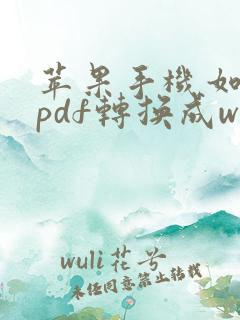 苹果手機如
pdf轉換成w
wuli花兮
未经同意禁止转载